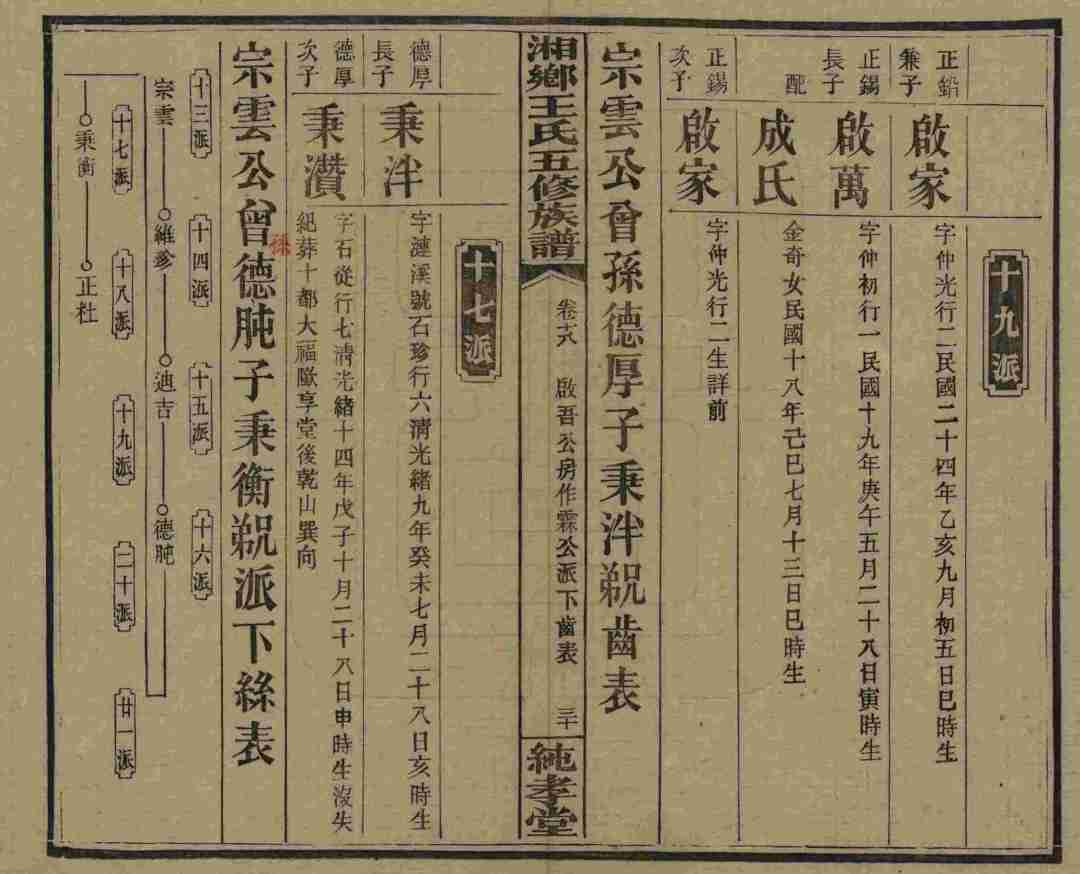 十九派
正鉛
兼子
啟家
字仲光行二民國二十四年乙亥九月初五日巳時生
正錫
長子
啟萬
字仲初行一民國十九年庚午五月二十八日寅時生
配
成氏
金奇女民國十八年己巳七月十三日巳時生
正錫
次子
啟家
字仲光行二生詳前
宗雲公曾孫德厚子秉泮覡齒表
湘鄉王氏五修族譜
卷十八
啟吾公房作霖公派下齒表
三十
純孝堂
十七派
德厚
長子
秉泮
字漣溪號石珍行六清光緒九年癸未七月二十八日亥時生
德厚
次子
秉瓚
字石從行七清光緒十四年戊子十月二十八日申時生沒失
紀葬十都大福歐享堂後乾山巽向
宗雲公曾孫德肫子秉衡覡派下絲表
十三派
十四派
十五派
十六派
宗雲
維珍
迪吉
德肫
十七派
十八派
十九派
二十派
廿一派
秉衡
正社